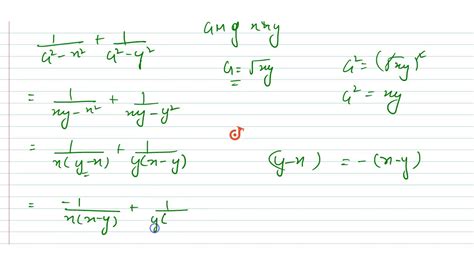 1/(a²-x²) + 1/(a²-y²)
a x g x x y
a = √xy
a² = (√xy)²
a² = xy
= 1/(xy-x²) + 1/(xy-y²)
= 1/(x(y-x)) + 1/(y(x-y))
(y-x) = -(x-y)
= -1/(x(x-y)) + 1/(y(